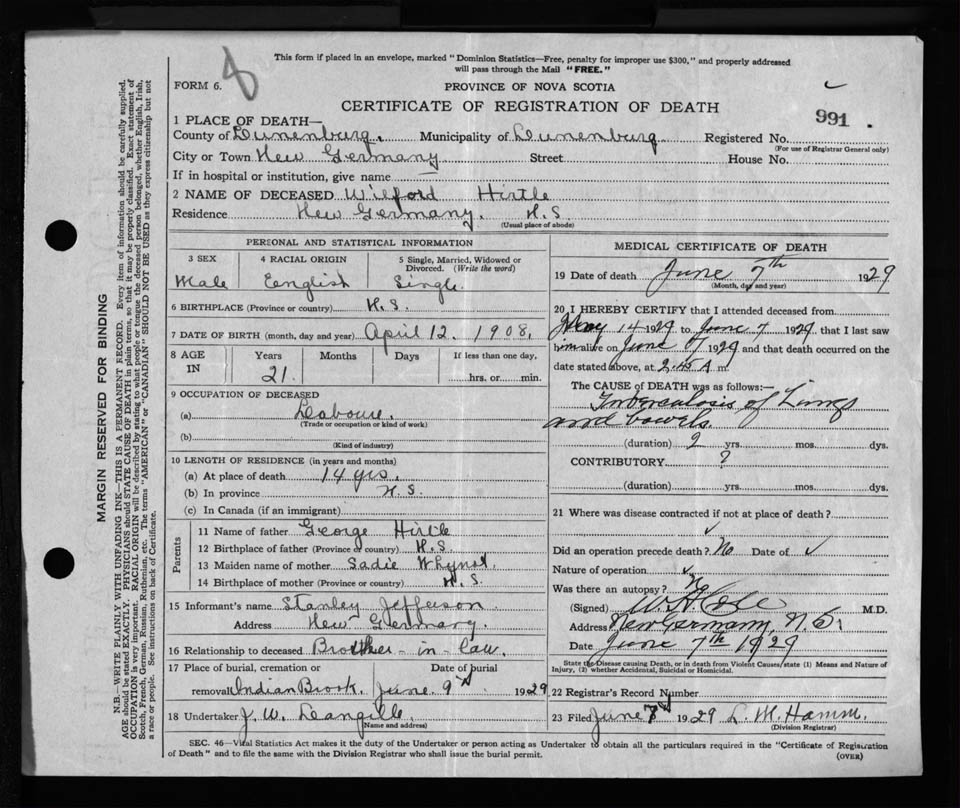 This form if placed in an envelope, marked "Dominion Statistics—Free, penalty for improper use $300," and properly addressed
will pass through the Mail "FREE."
FORM 6.
8
PROVINCE OF NOVA SCOTIA
CERTIFICATE OF REGISTRATION OF DEATH
991
1 PLACE OF DEATH—
County of Lunenburg. Municipality of Lunenburg Registered No.
(For use of Registrar General only)
City or Town New Germany Street House No.
If in hospital or institution, give name —
2 NAME OF DECEASED Wilford Hirtle
Residence New Germany. N.S.
(Usual place of abode)
PERSONAL AND STATISTICAL INFORMATION
3 SEX 4 RACIAL ORIGIN 5 Single, Married, Widowed or Divorced. (Write the word)
Male English Single
6 BIRTHPLACE (Province or country) N.S.
7 DATE OF BIRTH (month, day and year) April 12. 1908.
8 AGE IN Years Months Days If less than one day,
21. hrs. or min.
9 OCCUPATION OF DECEASED
(a) Laboure.
(Trade or occupation or kind of work)
(b)
(Kind of industry)
10 LENGTH OF RESIDENCE (in years and months)
(a) At place of death 14 yrs.
(b) In province N.S.
(c) In Canada (if an immigrant)
Parents
11 Name of father George Hirtle
12 Birthplace of father (Province or country) N.S.
13 Maiden name of mother Sadie Whynot
14 Birthplace of mother (Province or country) N.S.
15 Informant's name Stanley Jefferson
Address New Germany.
16 Relationship to deceased Brother-in-law.
17 Place of burial, cremation or Date of burial
removal Indian Brook. June. 9 1929
18 Undertaker J. W.
(Name and address)
MEDICAL CERTIFICATE OF DEATH
19 Date of death June 7th 1929
(Month, day and year)
20 I HEREBY CERTIFY that I attended deceased from
May 14 1929 to June 7 1929 that I last saw
him alive on June 1929 and that death occurred on the
date stated above, at 2.45 A m.
The CAUSE OF DEATH was as follows:—
Tuberculosis of Lungs
and bowels.
(duration) 2 yrs. mos. dys.
CONTRIBUTORY ?
(duration) yrs. mos. dys.
21 Where was disease contracted if not at place of death?
✓
Did an operation precede death? No Date of ✓
Nature of operation ✓
Was there an autopsy? No
(Signed) M.D.
Address New Germany, N.S.
Date June 7th 1929
State the Disease causing Death, or in death from Violent Causes state (1) Means and Nature of
Injury, (2) whether Accidental, Suicidal or Homicidal.
22 Registrar's Record Number
23 Filed June 1929 L. M. Hamm.
(Division Registrar)
SEC. 46—Vital Statistics Act makes it the duty of the Undertaker or person acting as Undertaker to obtain all the particulars required in the "Certificate of Registration
of Death" and to file the same with the Division Registrar who shall issue the burial permit.
(OVER)
MARGIN RESERVED FOR BINDING
N.B.—WRITE PLAINLY WITH UNFADING INK—THIS IS A PERMANENT RECORD. Every item of information should be carefully supplied.
AGE should be stated EXACTLY. PHYSICIANS should STATE CAUSE OF DEATH in plain terms, so that it may be properly classified. Exact statement of
OCCUPATION is very important. RACIAL ORIGIN will be described by stating to what people or tongue the deceased person belonged, whether English, Irish,
Scotch, French, German, Russian, Ruthenian, etc. The terms "AMERICAN" or "CANADIAN" SHOULD NOT BE USED as they express citizenship but not
a race or people. See instructions on back of Certificate.